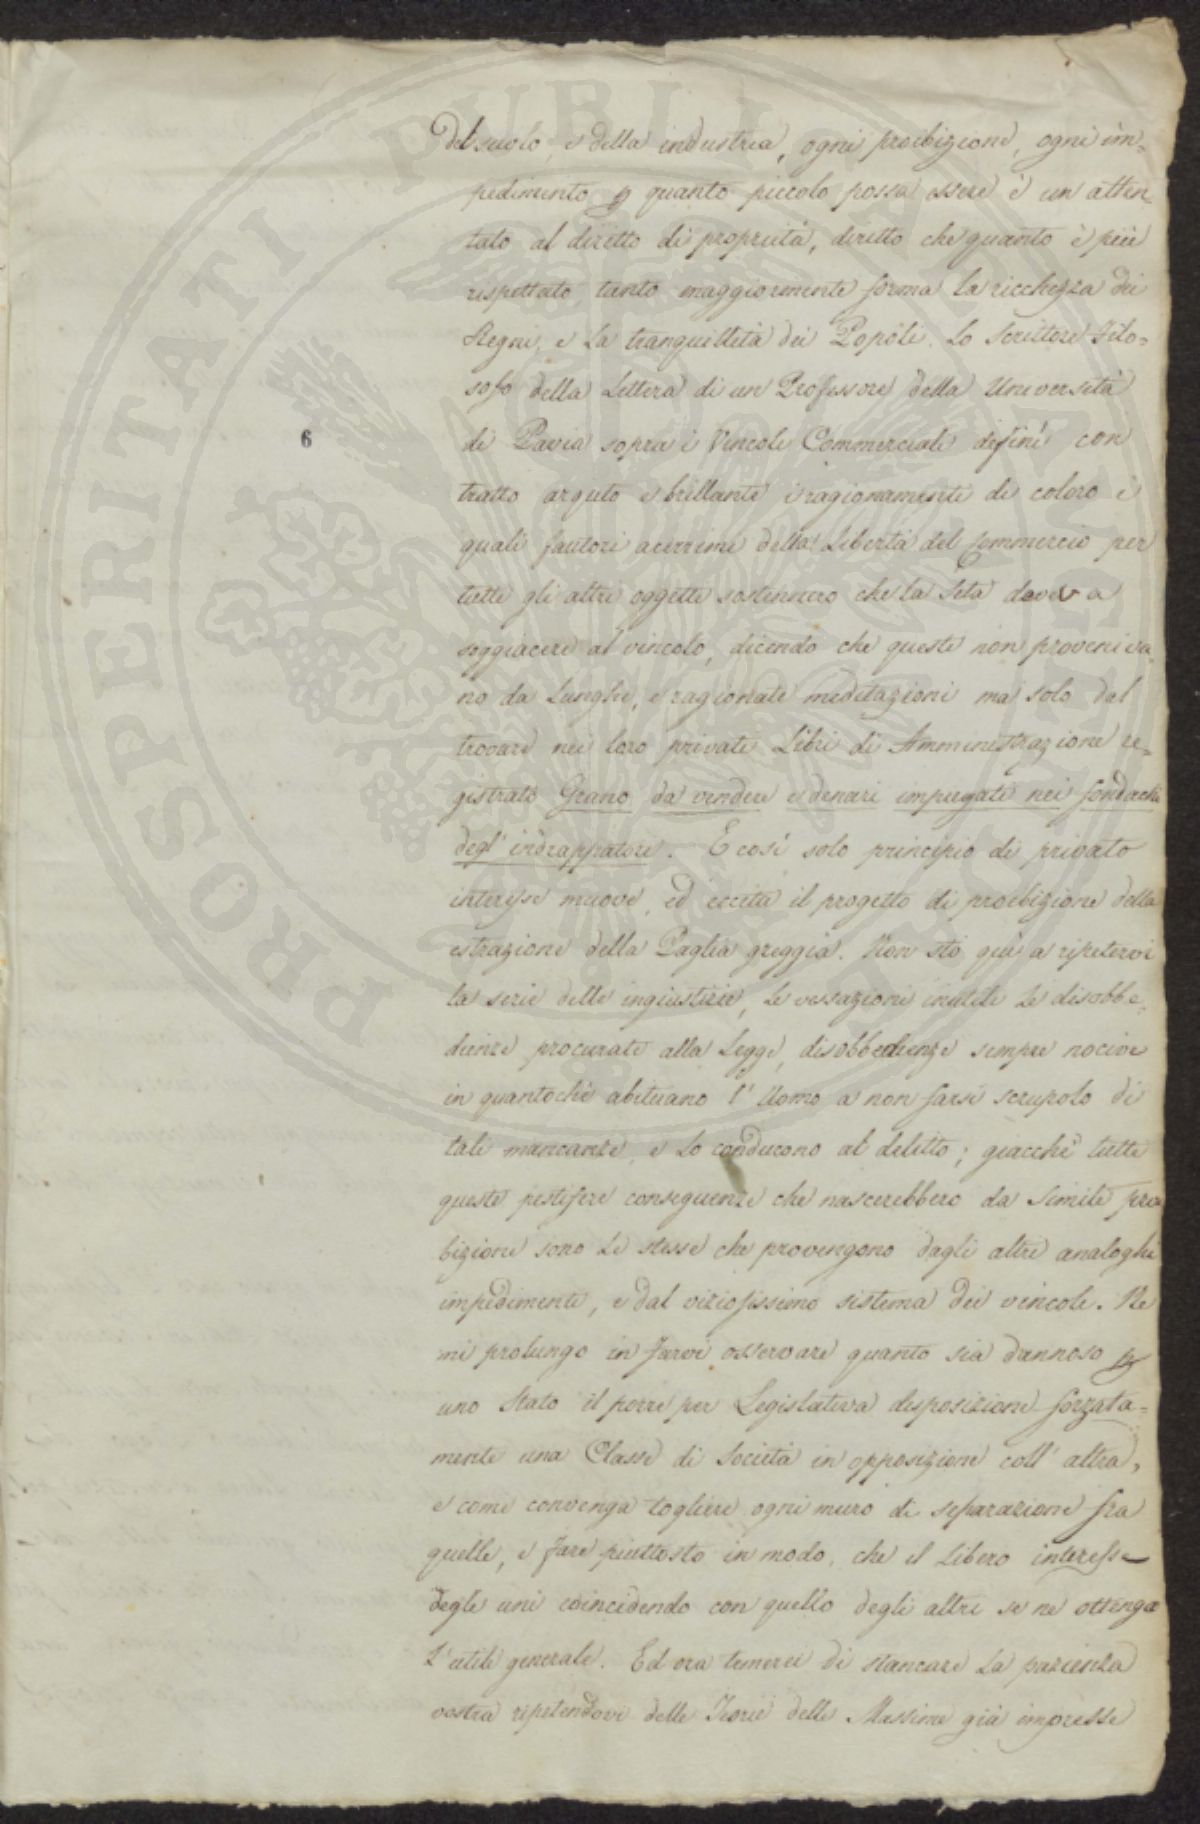 del suolo, e della industria, ogni proibizione, ogni im-
pedimento p quanto piccolo possa essere è un atten-
tato al diritto di proprietà, diritto che quanto è più
rispettato tanto maggiormente forma la ricchezza dei
Regni, e la tranquillità dei Popoli. Lo Scrittore Filo-
sofo della Lettera di un Professore della Università
di Pavia sopra i Vincoli Commerciali definì con
tratto arguto e brillante i ragionamenti di coloro i
quali fautori acerrimi della Libertà del Commercio per
tutti gli altri oggetti sostennero che la Seta doveva
soggiacere al vincolo, dicendo che questi non proveniva-
no da lunghe, e ragionate meditazioni ma solo dal
trovare nei loro privati Libri di Amministrazione re-
gistrato Grano da vendere e denari impiegati nei fondachi
degl' indrappatori. E così solo principio di privato
interesse muove, ed eccita il progetto di proibizione della
estrazione della Paglia greggia. Non stò quì a ripetervi
la serie delle ingiustizie, le vessazioni inutili le disobbe-
dienze procurate alla Legge, disobbedienze sempre nocive
in quantochè abituano l' Uomo a non farsi scrupolo di
tali mancanze, e lo conducono al delitto; giacchè tutte
queste pestifere conseguenze che nascerebbero da simile proi
bizione sono le stesse che provengono dagli altri analoghi
impedimenti, e dal viziosissimo sistema dei vincoli. Ne
mi prolungo in farvi osservare quanto sia dannoso p
uno Stato il porre per Legislativa disposizione forzata-
mente una Classe di Società in opposizione coll' altra,
e come convenga togliere ogni muro di separazione fra
quelle, e fare piuttosto in modo, che il libero interesse
degli uni coincidendo con quello degli altri se ne ottenga
l' utile generale. Ed ora temerei di stancare la pazienza
vostra ripetendovi delle Teorie delle Massime già impresse
6
PROSPERITATI PUBLICAE AUGENDAE